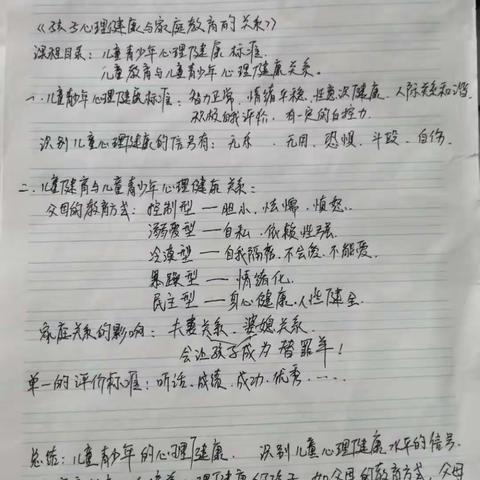 《孩子心理健康与家庭教育的关系》
课程目录：儿童青少年心理健康标准.
儿童教育与儿童青少年心理健康关系。
一.儿童青少年心理健康标准：智力正常，情绪平稳，性意识健康，人际关系和谐
积极的自我评价，有一定的自控力.
识别儿童心理健康的信号有：无乐、无用、恐惧、斗殴、自伤.
二.儿童健育与儿童青少年心理健康关系：
父母的教育方式：控制型—胆小，怯懦，愤怒.
溺爱型—自私.依赖性强.
冷漠型—自我隔离.不会爱.不能爱.
暴躁型—情绪化.
民主型—身心健康.人性健全.
家庭关系的影响：夫妻关系、婆媳关系.
会让孩子成为替罪羊！
单一的评价标准：听话.成绩.成功.优秀.……
总结：儿童青少年的心理健康. 识别儿童心理健康水平的信号.
理健康的孩子，如父母的教育方式，父母